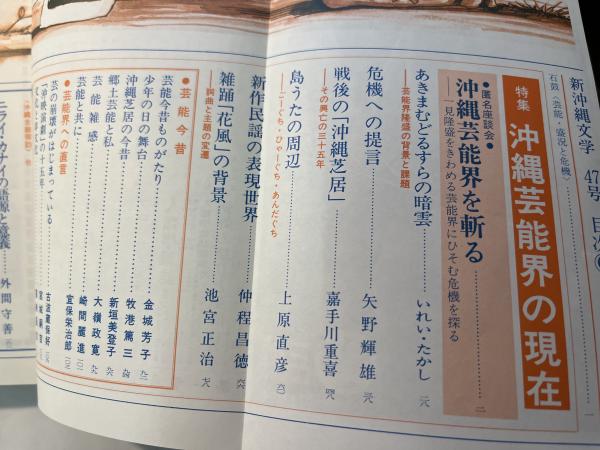 新沖縄文学 47号 目次
石鼓〈芸能・盛況と危機〉
特集 沖縄芸能界の現在
●匿名座談会●
沖縄芸能界を斬る
一見隆盛をきわめる芸能界にひそむ危機を探る
あきまむどるすらの暗雲 いれい・たかし
――芸能界隆盛の背景と課題
危機への提言 矢野輝雄
戦後の「沖縄芝居」 嘉手川重喜
――その興亡の三十五年
島うたの周辺 上原直彦
――ごーぐち・ひゃーぐち・あんだぐち
新作民謡の表現世界 仲程昌徳
雑踊「花風」の背景 池宮正治
――詞曲と主題の変遷
●芸能今昔
芸能今昔ものがたり 金城芳子
少年の日の舞台 牧港篤三
沖縄芝居の今昔 新垣美登子
郷土芸能と私 大嶺政寛
芸能雑感 崎間麗進
芸能と共に 宜保栄治郎
●芸能界への直言
芸の崩壊がはじまっている 古波蔵保好
ニライ・カナイの語源と意義 外間守善